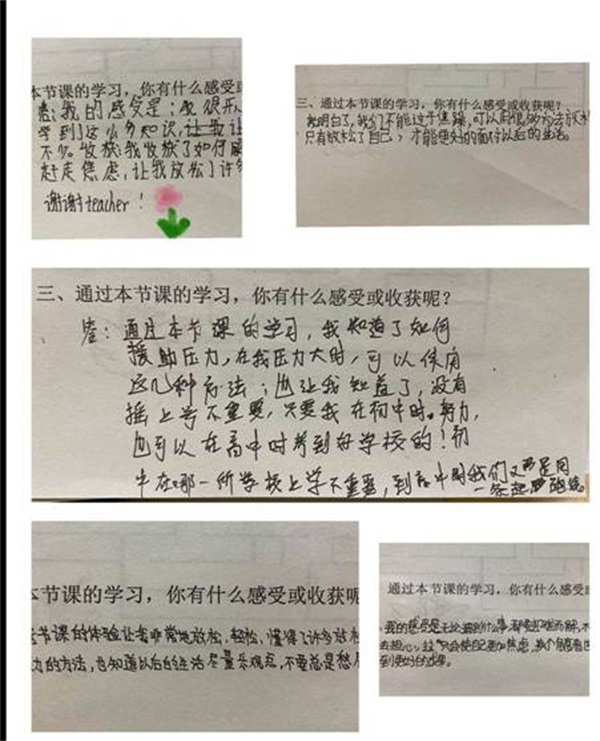 本节课的学习，你有什么感受或
悟：我的感受是：我很开
学到这么多知识，让我
不少。收获：我收获了如何
赶走焦虑，让我放松了许多
谢谢teacher！
三、通过本节课的学习，你有什么感受或收获呢？
我明白了，我们不能过于焦虑，可以用很多方法
只有放松了自己，才能更好的面对以后的生活。
三、通过本节课的学习，你有什么感受或收获呢？
答：通过本节课的学习，我知道了如何
援助压力，在我压力大时，可以使用
这几种方法；也让我知道了，没有
摇上号不重要，只要我在初中时努力，
也可以在高中时考到好学校的！初
中在哪一所学校上学不重要，到高中时我们又都是同
一条起跑线。
本节课的学习，你有什么感受或收获呢
这节课的体验让我非常地放松，轻松，懂得了许多
力的方法，也知道以后的生活尽量乐观点，不要总是想
通过本节课的学习，你有什么感受
我的感受是无论遇到什么事，都
去担心，这只会使自己更加焦虑，换个角度看
到更好的效果。